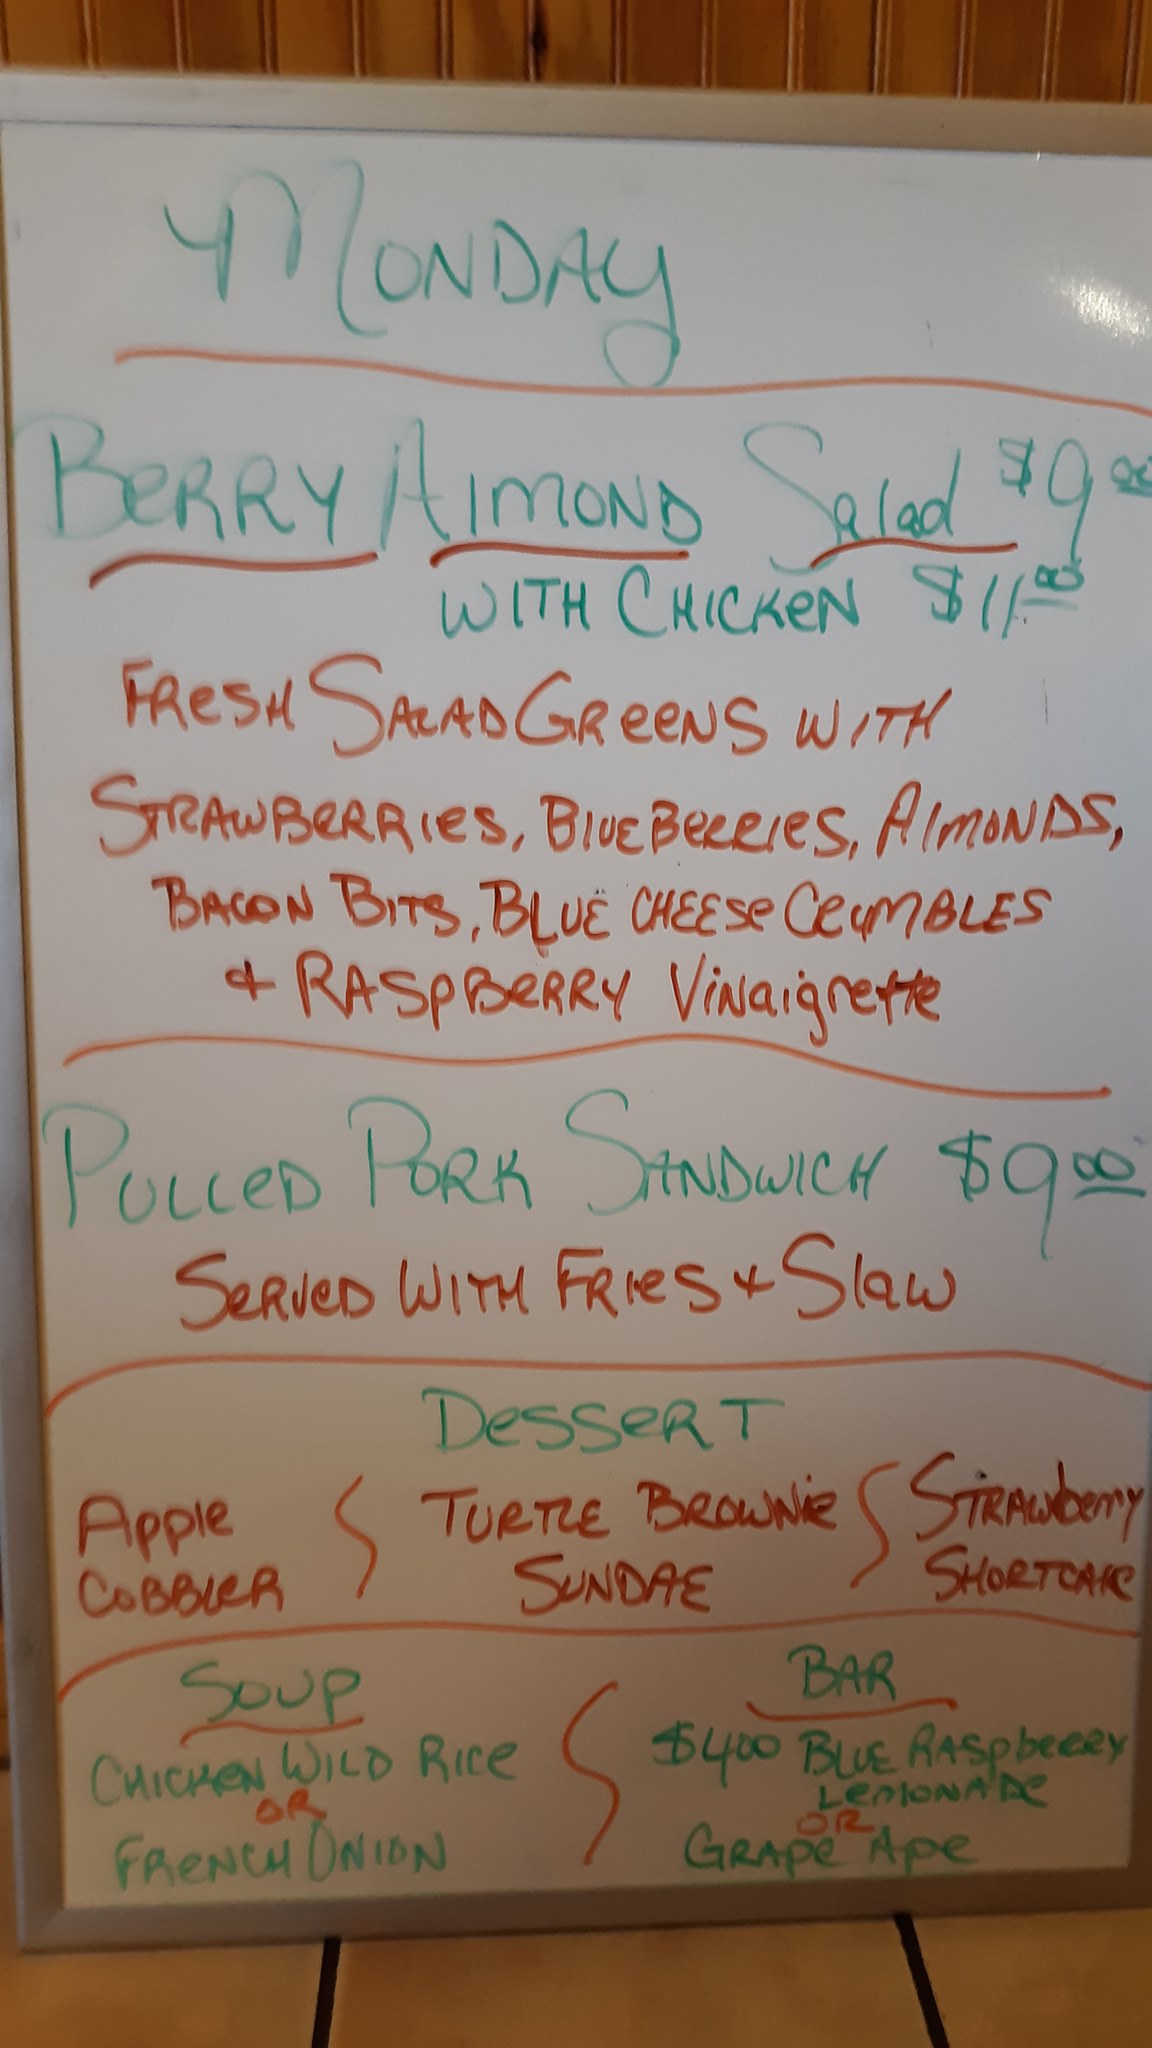 Monday
Berry Almond Salad $9.00
with Chicken $11.00
Fresh Salad Greens with
Strawberries, Blueberries, Almonds,
Bacon Bits, Blue Cheese Crumbles
& Raspberry Vinaigrette
Pulled Pork Sandwich $9.00
Served with Fries & Slaw
Dessert
Apple
Cobbler
Turtle Brownie
Sundae
Strawberry
Shortcake
Soup
Chicken Wild Rice
or
French Onion
Bar
$400 Blue Raspberry
Lemonade
or
Grape Ape